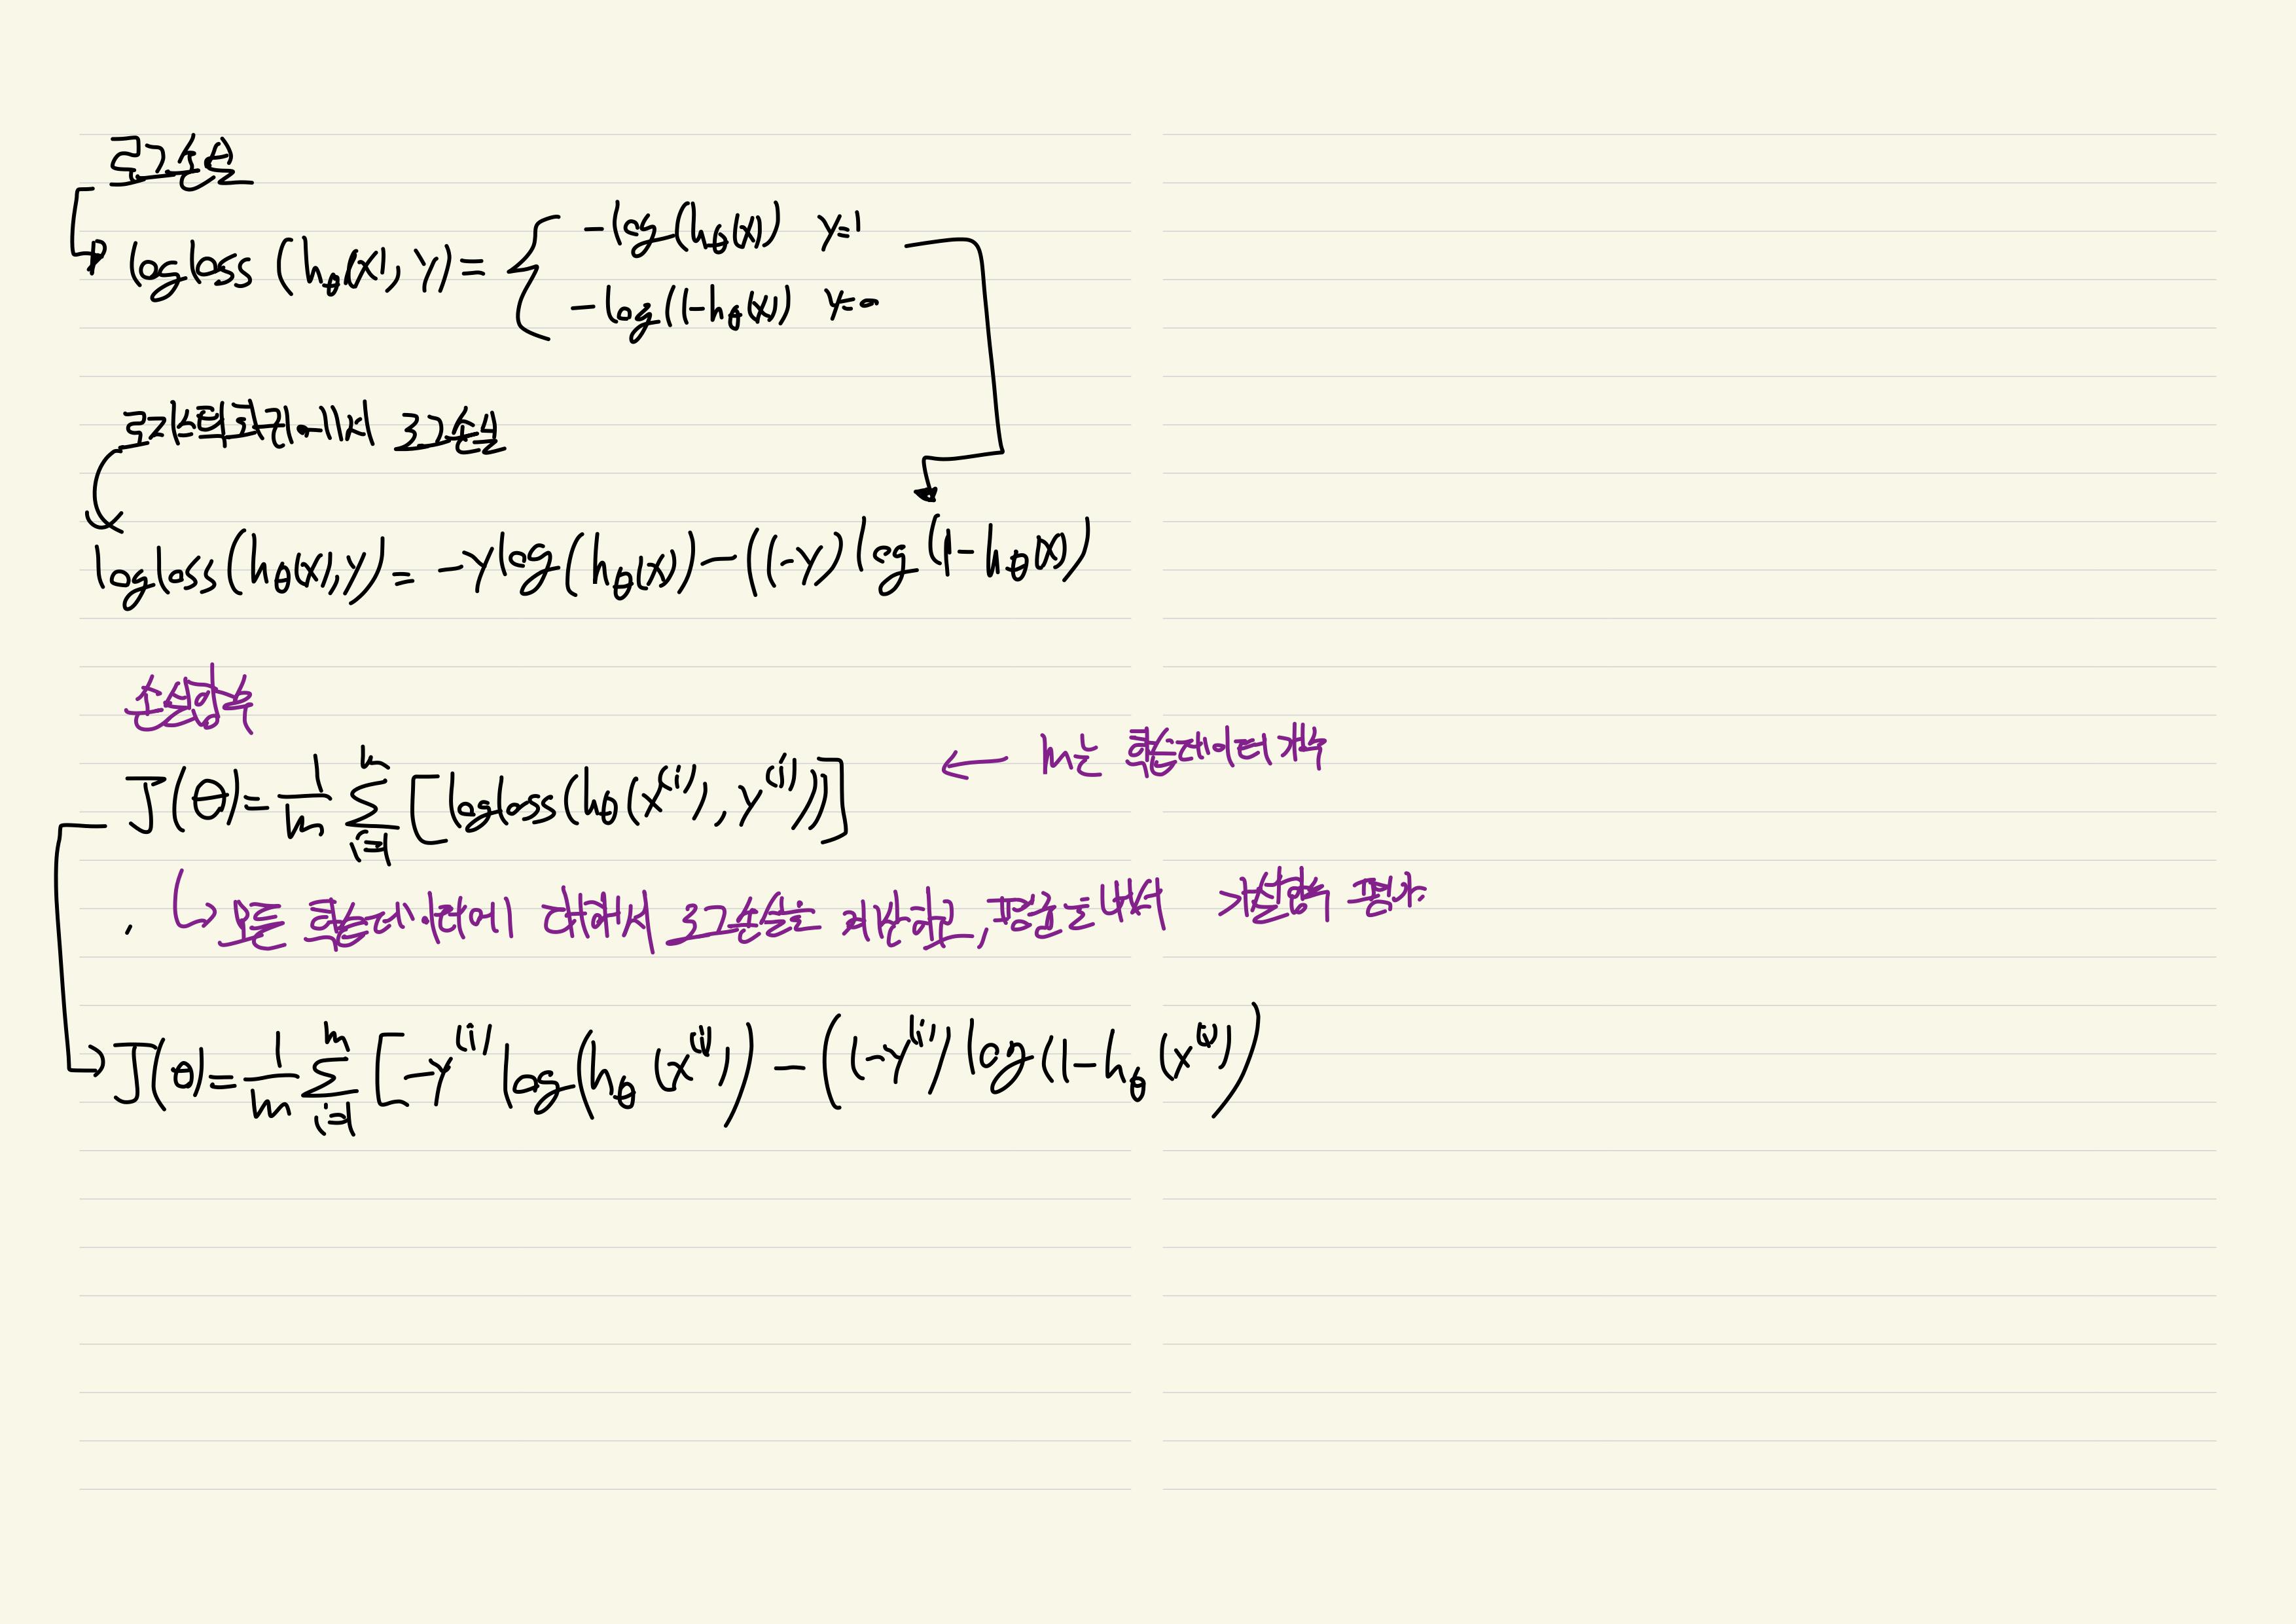 로그손실
logloss (hθ(x), y) = { -log(hθ(x)) y=1
-log(1-hθ(x)) y=0
로지스틱회귀에서 로그손실
logloss(hθ(x), y) = -y log(hθ(x)) - ((1-y) log(1-hθ(x))
손실함수
J(θ) = 1/m Σ_{i=1}^{m} [logloss(hθ(x^(i)), y^(i)))] ← m는 훈련데이터 개수
↳ 모든 훈련데이터에 대해서 로그손실을 계산하고, 평균을 내서 가설함수 평가
J(θ) = 1/m Σ_{i=1}^{m} [-y^(i) log(hθ(x^(i))) - ((1-y^(i)) log(1-hθ(x^(i)))